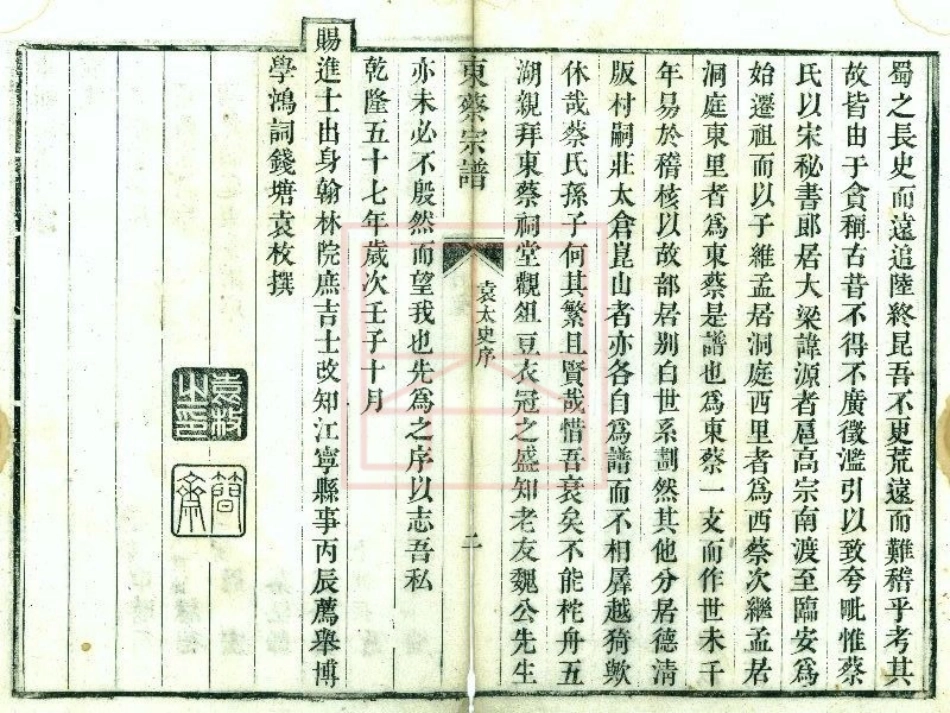 蜀之長史而遠追陸終昆吾不更荒遠而難稽乎考其
故皆由于貪稱古昔不得不廣徵濫引以致夸毗惟蔡
氏以宋秘書郎居大梁諱源者扈高宗南渡至臨安爲
始遷祖而以子維孟居洞庭西里者爲西蔡次繼孟居
洞庭東里者爲東蔡是譜也爲東蔡一支而作世未千
年易於稽核以故部居别白世系劃然其他分居德清
版村嗣莊太倉崑山者亦各自爲譜而不相羼越猗歟
休哉蔡氏孫子何其繁且賢哉惜吾衰矣不能柁舟五
湖親拜東蔡祠堂觀俎豆衣冠之盛知老友魏公先生
東蔡宗譜
袁太史序
二
亦未必不殷然而望我也先爲之序以志吾私
乾隆五十七年歲次壬子十月
賜進士出身翰林院庶吉士改知江寧縣事丙辰薦舉博
學鴻詞錢塘袁枚撰
袁枚之印
簡齋